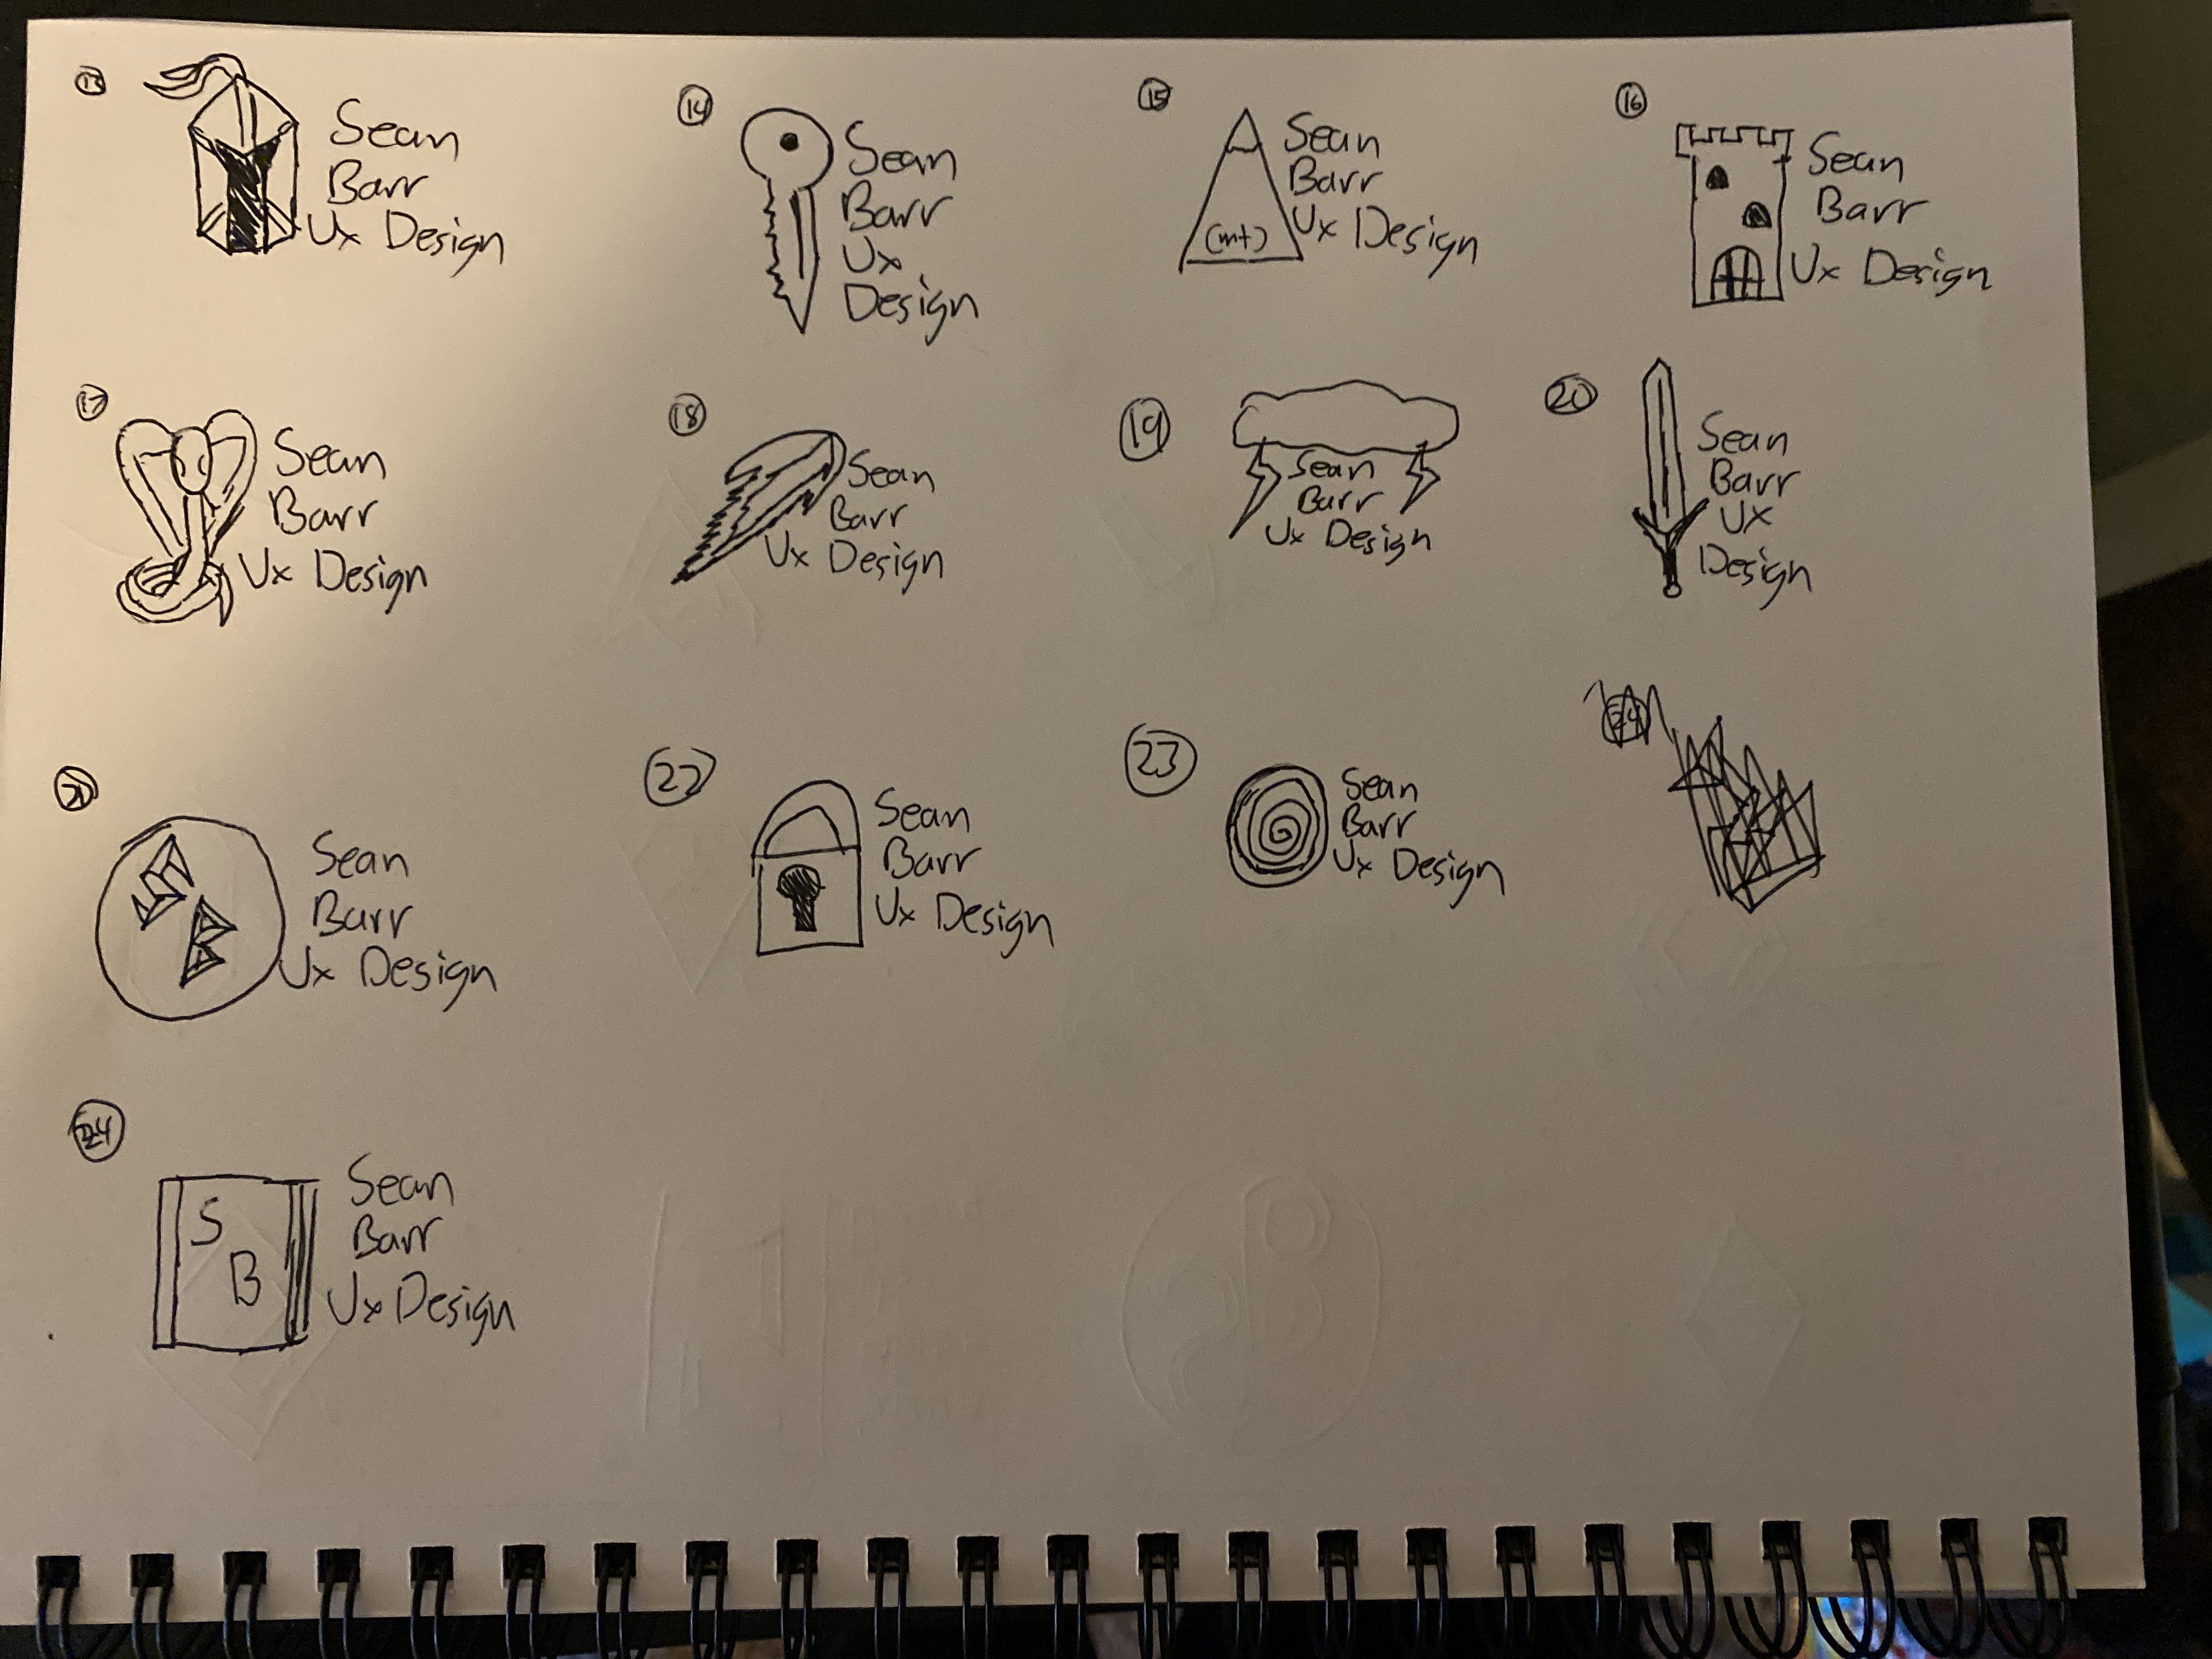 13
Sean
Barr
Ux Design
14
Sean
Barr
Ux
Design
15
Sean
Barr
Ux Design
16
Sean
Barr
Ux Design
17
Sean
Barr
Ux Design
18
Sean
Barr
Ux Design
19
Sean
Barr
Ux Design
20
Sean
Barr
Ux
Design
Sean
Barr
Ux Design
22
Sean
Barr
Ux Design
23
Sean
Barr
Ux Design
24
S
B
Sean
Barr
Ux Design